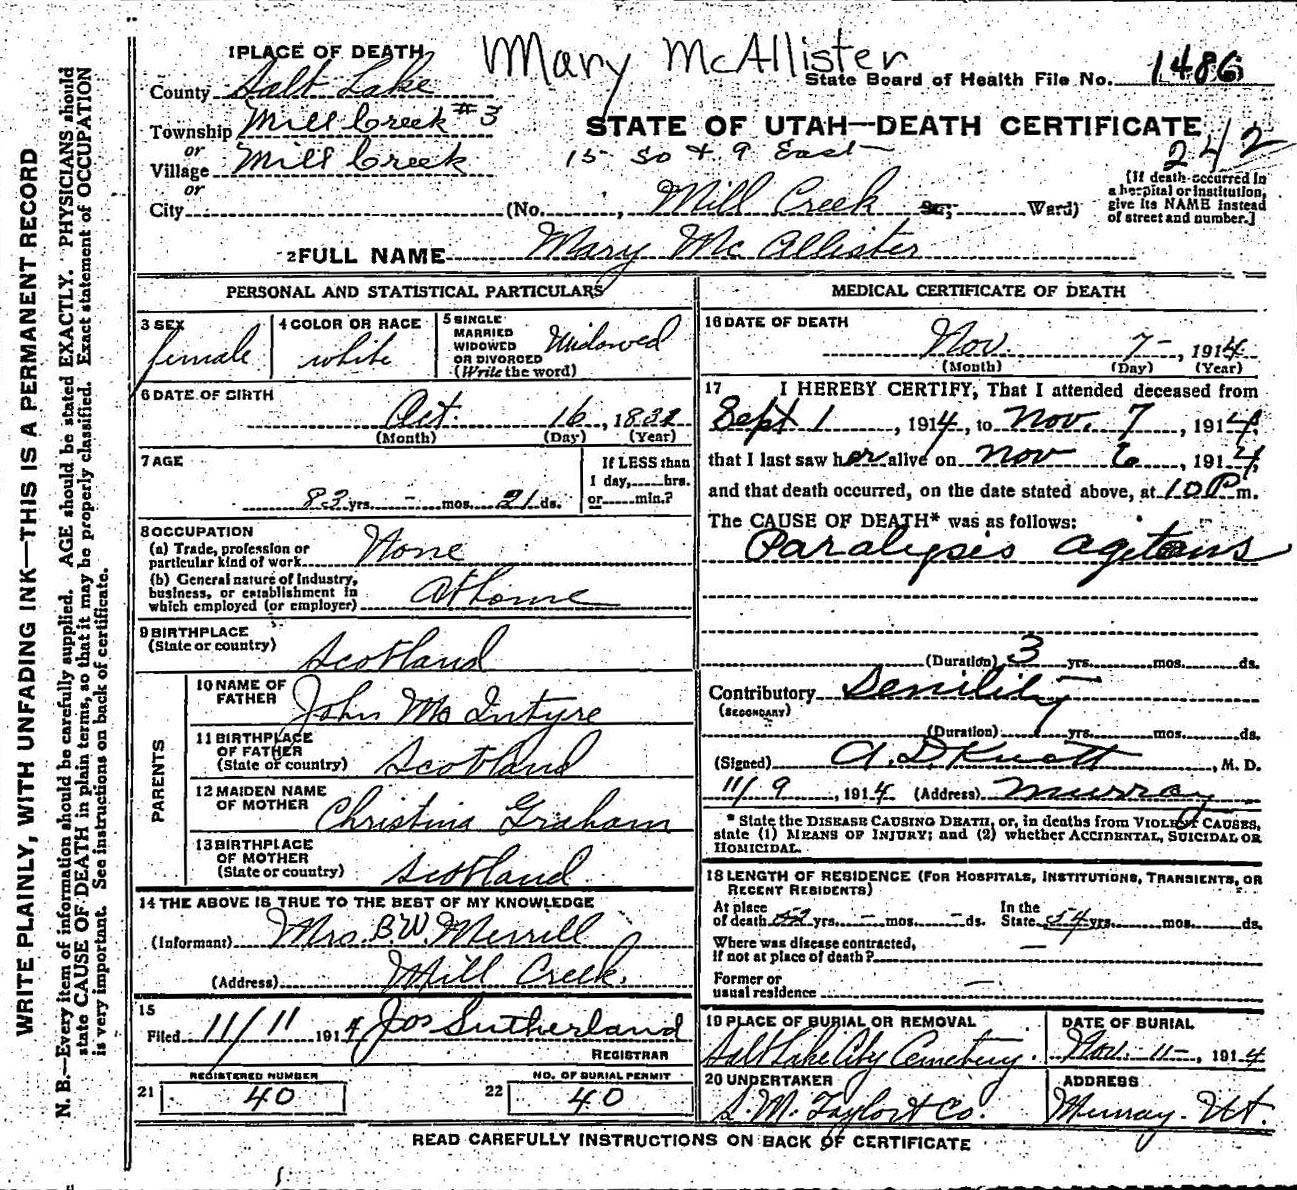 Mary McAllister
1 PLACE OF DEATH
State Board of Health File No. 1486
County Salt Lake
Township Mill Creek #3
STATE OF UTAH—DEATH CERTIFICATE
or
15 So & 9 East
242
Village Mill Creek
or
[If death occurred in
a hospital or institution,
give its NAME instead
of street and number.]
City (No. , Mill Creek St; Ward)
2 FULL NAME Mary McAllister
PERSONAL AND STATISTICAL PARTICULARS
3 SEX
female
4 COLOR OR RACE
white
5 SINGLE
MARRIED
WIDOWED
OR DIVORCED
(Write the word)
Widowed
6 DATE OF BIRTH
Oct. 16, 1832
(Month) (Day) (Year)
7 AGE
83 yrs. - mos. 21 ds.
If LESS than
1 day, hrs.
or min.?
8 OCCUPATION
(a) Trade, profession or
particular kind of work None
(b) General nature of industry,
business, or establishment in
which employed (or employer) At home
9 BIRTHPLACE
(State or country)
Scotland
PARENTS
10 NAME OF
FATHER
John McIntyre
11 BIRTHPLACE
OF FATHER
(State or country)
Scotland
12 MAIDEN NAME
OF MOTHER
Christina Graham
13 BIRTHPLACE
OF MOTHER
(State or country)
Scotland
14 THE ABOVE IS TRUE TO THE BEST OF MY KNOWLEDGE
(Informant) Mrs. B.W. Merrill
(Address) Mill Creek.
15
Filed 11/11 1914 Jos Sutherland
REGISTRAR
21 REGISTERED NUMBER
40
22 NO. OF BURIAL PERMIT
40
MEDICAL CERTIFICATE OF DEATH
16 DATE OF DEATH
Nov. 7-, 1914
(Month) (Day) (Year)
17 I HEREBY CERTIFY, That I attended deceased from
Sept 1, 1914, to Nov. 7, 1914,
that I last saw her alive on Nov 6, 1914,
and that death occurred, on the date stated above, at 10 P m.
The CAUSE OF DEATH* was as follows:
Paralysis agitans
(Duration) 3 yrs. mos. ds.
Contributory Senility
(SECONDARY)
(Duration) yrs. mos. ds.
(Signed) A. D. Knott, M. D.
11/9, 1914 (Address) Murray
* State the DISEASE CAUSING DEATH, or, in deaths from VIOLENT CAUSES,
state (1) MEANS OF INJURY; and (2) whether ACCIDENTAL, SUICIDAL OR
HOMICIDAL.
18 LENGTH OF RESIDENCE (FOR HOSPITALS, INSTITUTIONS, TRANSIENTS, OR
RECENT RESIDENTS)
At place
of death 52 yrs. - mos. - ds.
In the
State 54 yrs. mos. ds.
Where was disease contracted,
if not at place of death? —
Former or
usual residence —
19 PLACE OF BURIAL OR REMOVAL
Salt Lake City Cemetery.
DATE OF BURIAL
Nov. 11-, 1914
20 UNDERTAKER
S. M. Taylor & Co.
ADDRESS
Murray. Ut.
READ CAREFULLY INSTRUCTIONS ON BACK OF CERTIFICATE
WRITE PLAINLY, WITH UNFADING INK—THIS IS A PERMANENT RECORD
N. B.—Every item of information should be carefully supplied. AGE should be stated EXACTLY. PHYSICIANS should
state CAUSE OF DEATH in plain terms, so that it may be properly classified. Exact statement of OCCUPATION
is very important. See instructions on back of certificate.